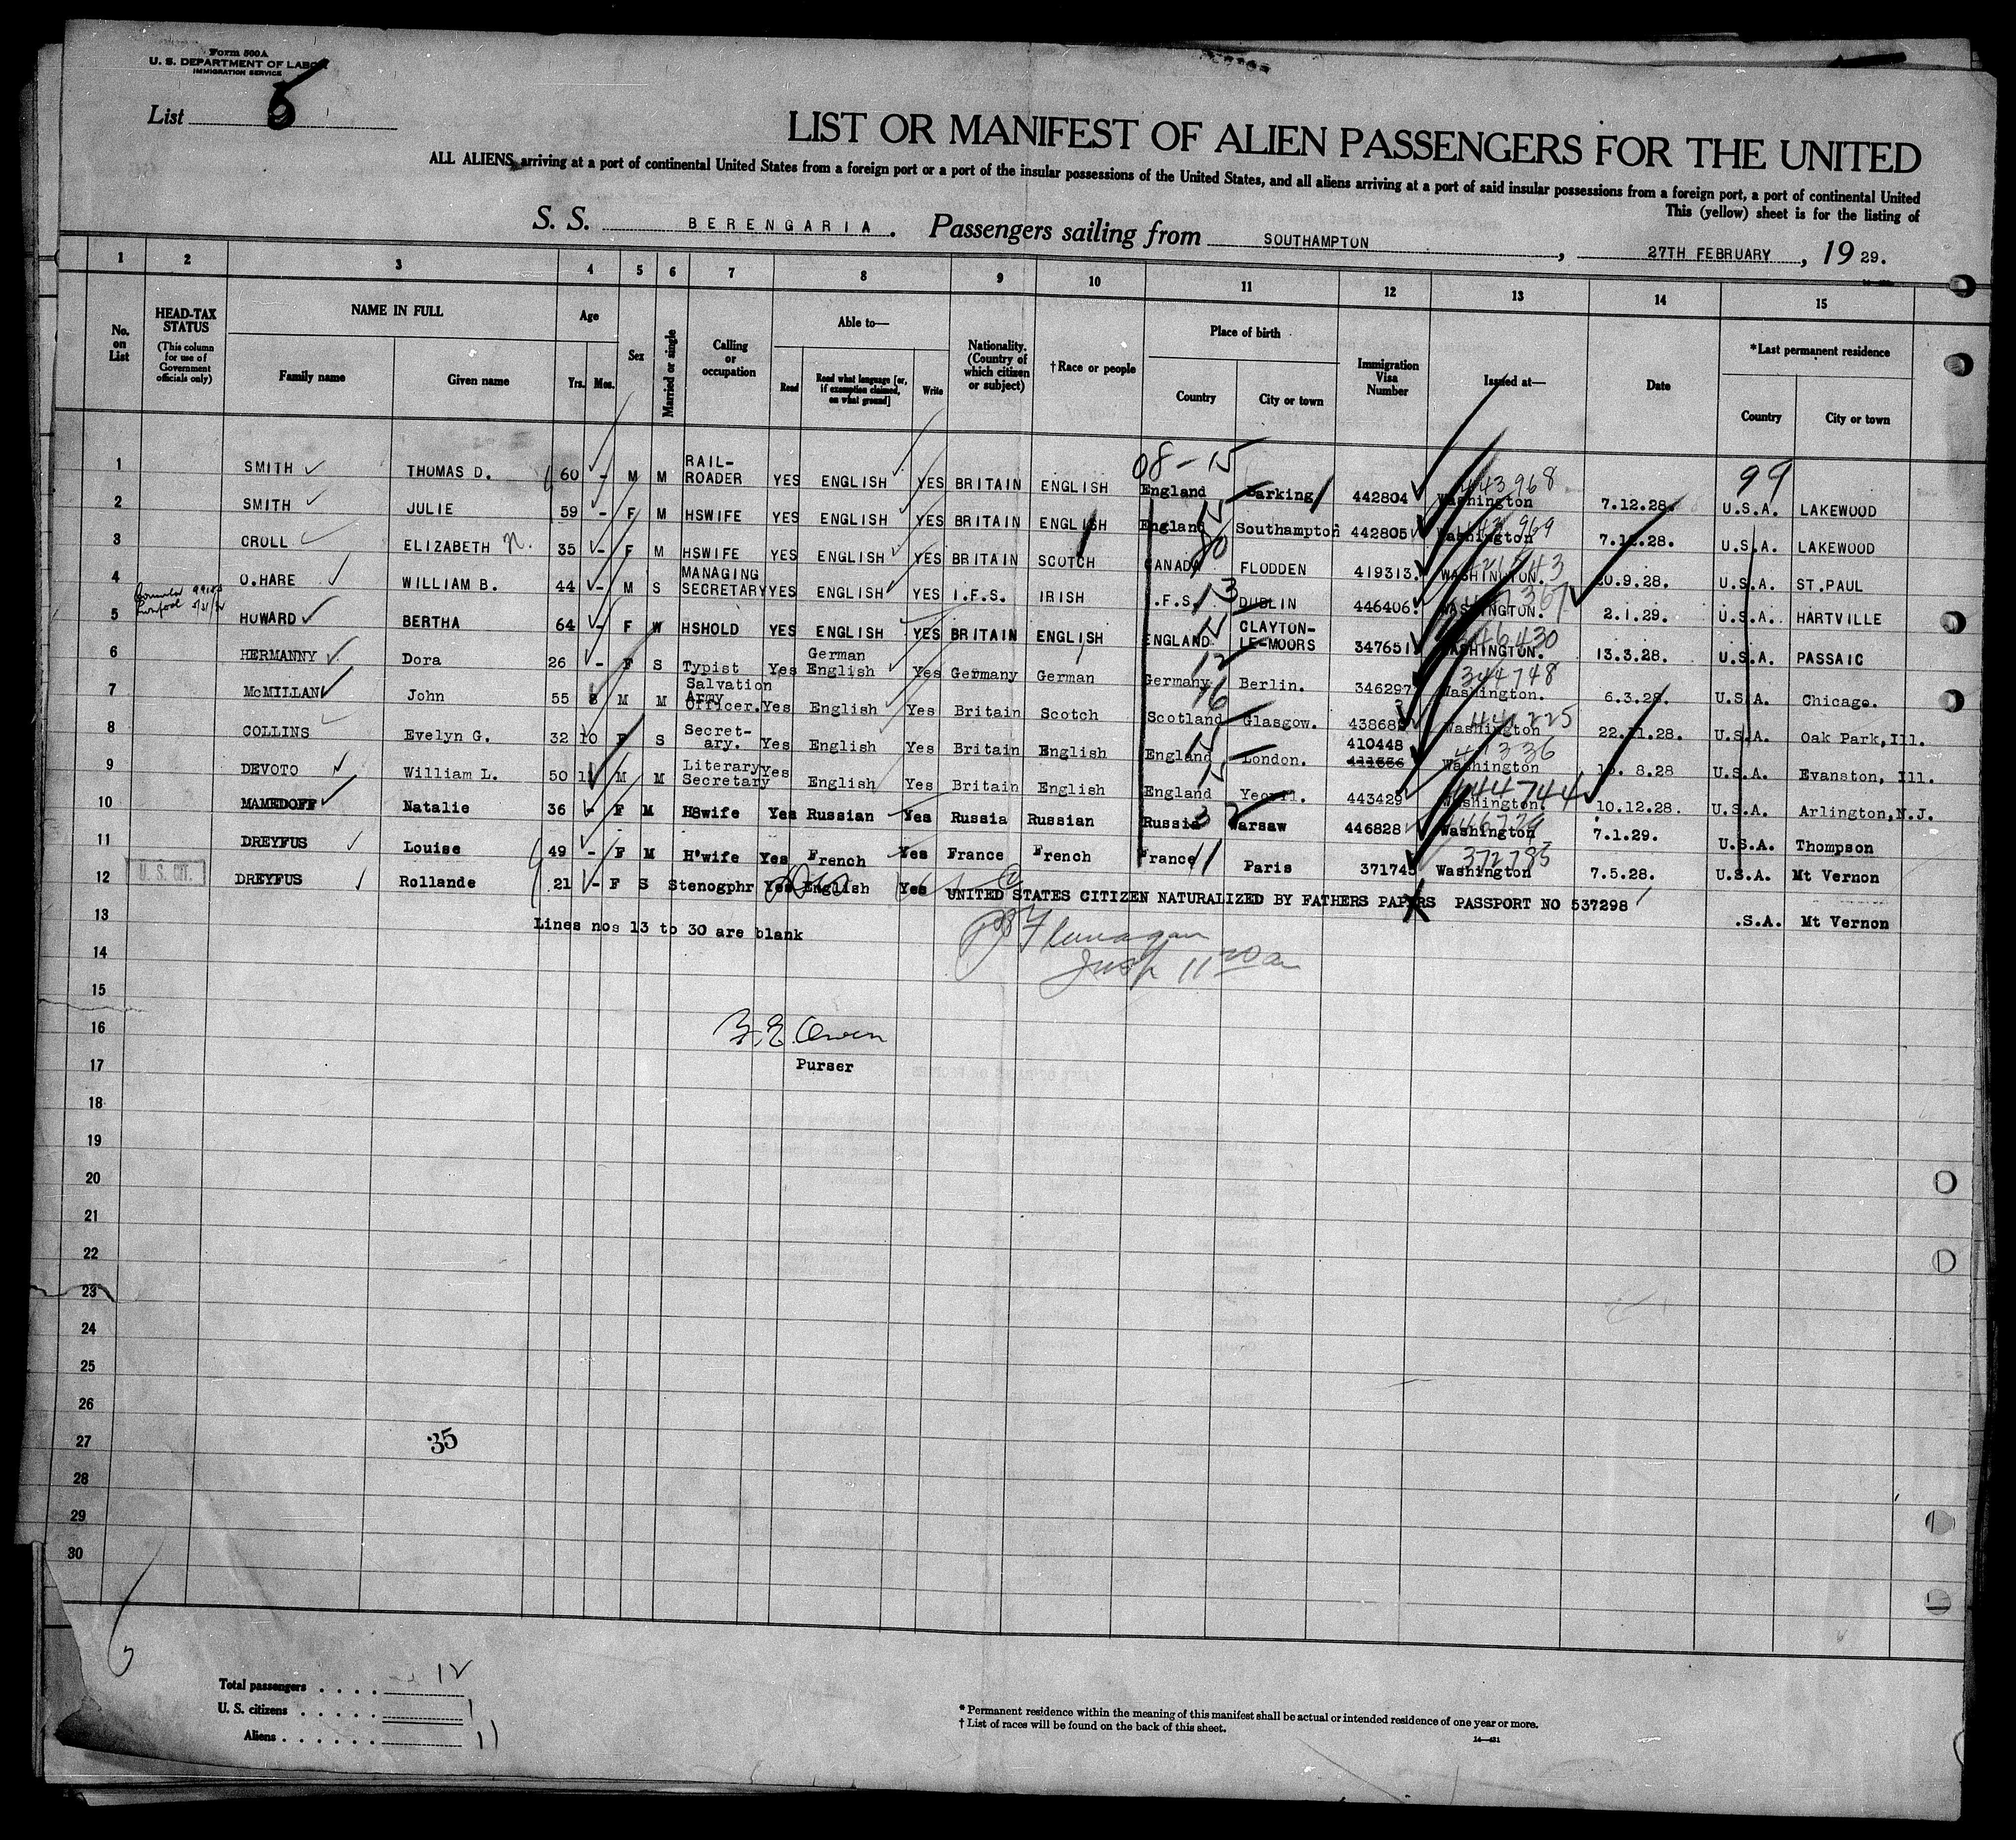 Form 500A
U. S. DEPARTMENT OF LABOR
IMMIGRATION SERVICE
List 5
LIST OR MANIFEST OF ALIEN PASSENGERS FOR THE UNITED
ALL ALIENS arriving at a port of continental United States from a foreign port or a port of the insular possessions of the United States, and all aliens arriving at a port of said insular possessions from a foreign port, a port of continental United
This (yellow) sheet is for the listing of
S. S. BERENGARIA. Passengers sailing from SOUTHAMPTON, 27TH FEBRUARY, 1929.
1 2 3 4 5 6 7 8 9 10 11 12 13 14 15
No. on List
HEAD-TAX STATUS (This column for use of Government officials only)
NAME IN FULL
Family name Given name
Age
Yrs. Mos.
Sex
Married or single
Calling or occupation
Able to—
Read Read what language [or, if exemption claimed, on what ground] Write
Nationality. (Country of which citizen or subject)
†Race or people
Place of birth
Country City or town
Immigration Visa Number
Issued at—
Date
*Last permanent residence
Country City or town
08-15 99
1 SMITH THOMAS D. 60 - M M RAIL-ROADER YES ENGLISH YES BRITAIN ENGLISH England Barking 442804 443968 Washington 7.12.28. U.S.A. LAKEWOOD
2 SMITH JULIE 59 - F M HSWIFE YES ENGLISH YES BRITAIN ENGLISH England 15 Southampton 442805 443969 Washington 7.12.28. U.S.A. LAKEWOOD
3 CROLL ELIZABETH N. 35 - F M HSWIFE YES ENGLISH YES BRITAIN SCOTCH CANADA FLODDEN 419313. WASHINGTON. 20.9.28. U.S.A. ST.PAUL
4 O.HARE WILLIAM B. 44 - M S MANAGING SECRETARY YES ENGLISH YES I.F.S. IRISH .F.S. 13 DUBLIN 446406. WASHINGTON. 2.1.29. U.S.A. HARTVILLE
5 HOWARD BERTHA 64 - F W HSHOLD YES ENGLISH YES BRITAIN ENGLISH ENGLAND 15 CLAYTON-LE-MOORS 347651 346430 WASHINGTON. 13.3.28. U.S.A. PASSAIC
6 HERMANNY Dora 26 - F S Typist Yes German English Yes Germany German Germany 12 Berlin. 346297 344748 Washington. 6.3.28. U.S.A. Chicago.
7 McMILLAN John 55 8 M M Salvation Army Officer. Yes English Yes Britain Scotch Scotland 16 Glasgow. 438685 441225 Washington 22.11.28. U.S.A. Oak Park,Ill.
8 COLLINS Evelyn G. 32 10 F S Secret-ary. Yes English Yes Britain English England 15 London. 410448 Washington . 8.28 U.S.A. Evanston, Ill.
9 DEVOTO William L. 50 11 M M Literary Secretary Yes English Yes Britain English England 15 Yeovil. 443429 444744 Washington. 10.12.28. U.S.A. Arlington,N.J.
10 MAMEDOFF Natalie 36 - F M HSwife Yes Russian Yes Russia Russian Russia 3 Warsaw 446828 Washington 7.1.29. U.S.A. Thompson
11 DREYFUS Louise 49 - F M H'wife Yes French Yes France French France 11 Paris 371745 372783 Washington 7.5.28. U.S.A. Mt Vernon
12 U. S. CIT. DREYFUS Rollande 21 - F S Stenogphr Yes English Yes UNITED STATES CITIZEN NATURALIZED BY FATHERS PAPERS PASSPORT NO 537298 .S.A. Mt Vernon
13 Lines nos 13 to 30 are blank
Flanagan
14
Insp 11 20 a
15
16 Owen
17 Purser
18
19
20
21
22
23
24
25
26
27 35
28
29
30
Total passengers . . . . 12
U. S. citizens . . . . . 1
Aliens . . . . . . 11
* Permanent residence within the meaning of this manifest shall be actual or intended residence of one year or more.
† List of races will be found on the back of this sheet.
14—431